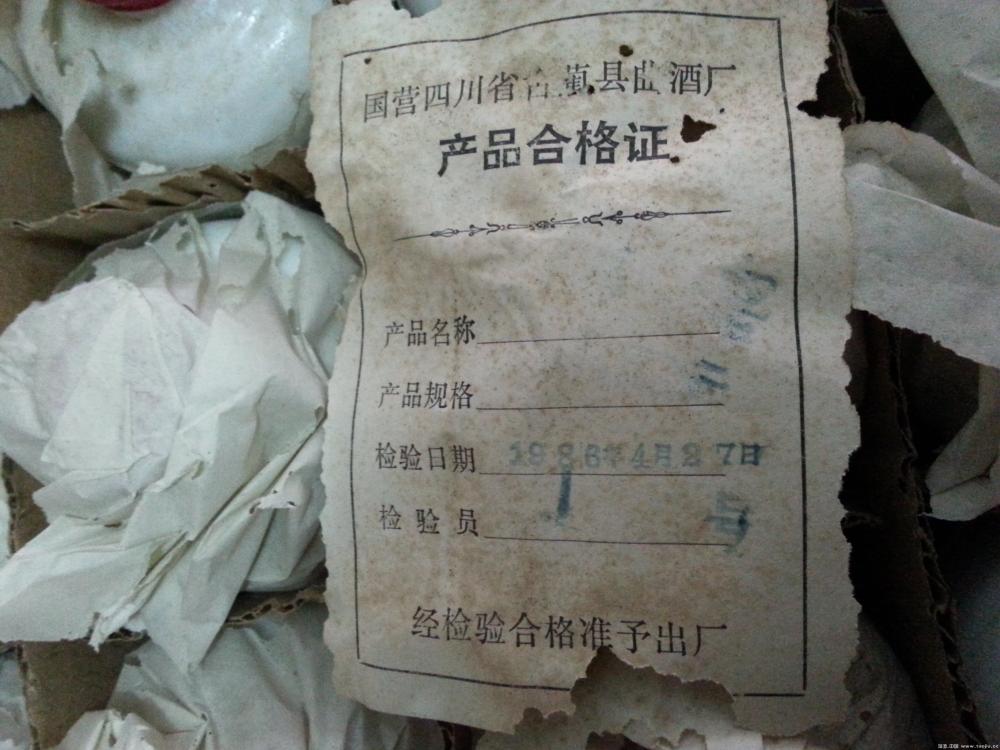 国营四川省古蔺县曲酒厂
产品合格证
产品名称
产品规格
检验日期 1986年4月27日
检验员 1 号
经检验合格准予出厂